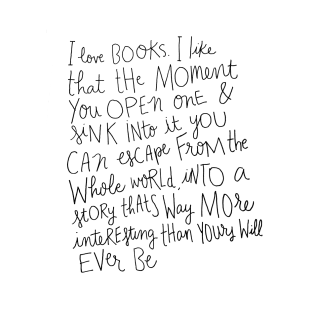 I love BOOKS. I like
that tHe MOment
You OPEn onE &
SiNK INto it you
CAn escApe FroM the
Whole woRLd, iNTO a
stORy thAtS Way MORe
inteREsting tHan YOurs Will
EVer Be